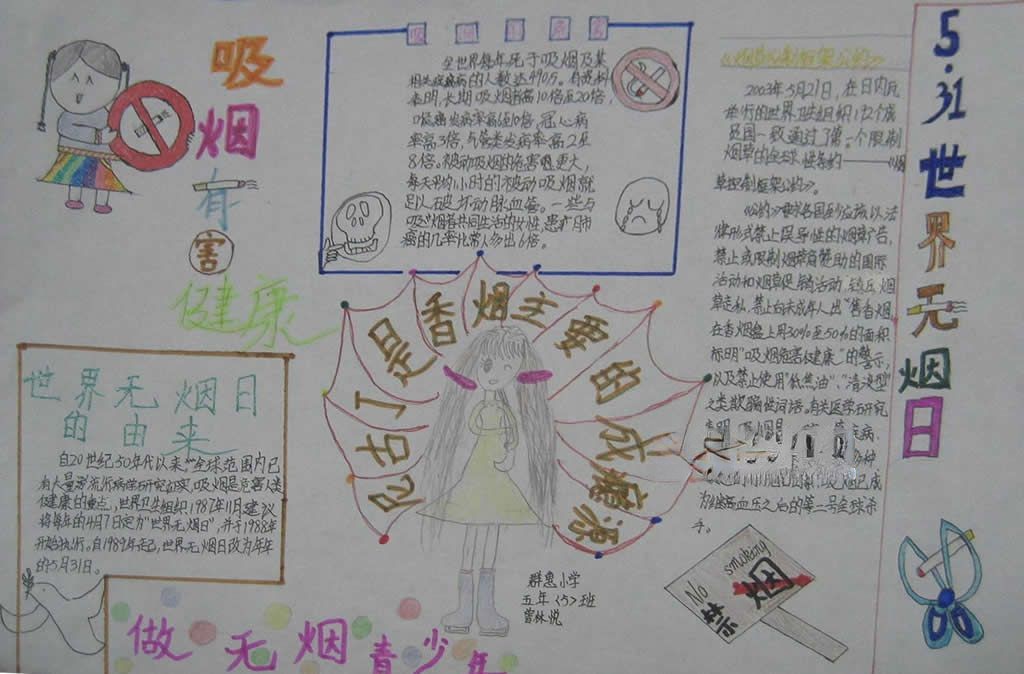 吸
烟
有
害
健康
吸烟的危害
全世界每年死于吸烟及其
相关疾病的人数达490万。有资料
表明,长期吸烟者高10倍至20倍,
喉癌发病率高6至10倍,冠心病
率高3倍,气管类发病率高2至
8倍。被动吸烟的危害更大,
每天平均1小时的被动吸烟就
足以破坏动脉血管。一些与
吸烟者共同生活的女性,患肺
癌的几率比常人多出6倍。
《烟草控制框架公约》
2003年5月21日,在日内瓦
举行的世界卫生组织192个成
员国一致通过了第一个限制
烟草的全球性条约——《烟
草控制框架公约》。
《公约》要求各国以法
律形式禁止误导性的烟草广告,
禁止或限制烟草商赞助的国际
活动和烟草促销活动,
草走私,禁止向未成年人出售香烟,
在香烟盒上用30%至50%的面积
标明"吸烟危害健康"的警示
以及禁止使用"低焦油"、"清淡型"
之类欺骗性词语。有关医学研究
表明,吸烟是
吸烟已成
为继高血压之后的第二号全球杀
手。
5.31
世
界
无
烟
日
尼古丁是香烟主要的成瘾源
世界无烟日
的由来
自20世纪50年代以来,全球范围内已
有大量流行病学研究证实,吸烟是危害人类
健康的重点,世界卫生组织1987年11月建议
将每年的4月7日定为"世界无烟日",并于1988年
开始执行。自1989年起,世界无烟日改为每年
的5月31日。
群惠小学
五年〈5〉班
曾林悦
No smoking
禁烟
做无烟青少年